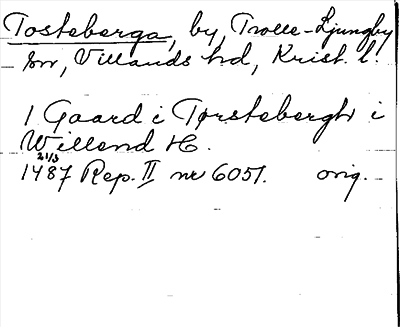 Tosteberga, by, Trolle-Ljungby
sn, Villands hd, Krist. l.
1 Gaard i Tørstebergh i
Willand H.
21/3
1487 Rep. II nr 6051. orig.